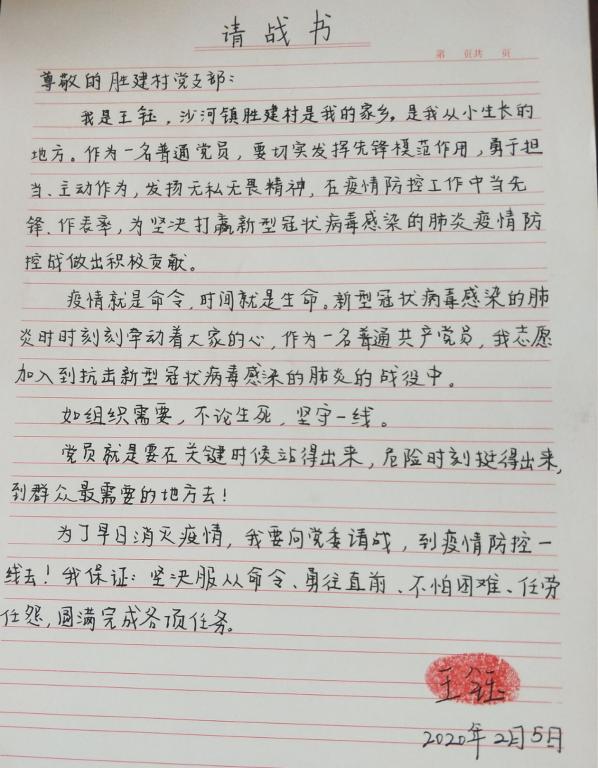 请战书
第 页共 页
尊敬的胜建村党支部：
我是王钰，沙河镇胜建村是我的家乡。是我从小生长的
地方。作为一名普通党员，要切实发挥先锋模范作用，勇于担
当、主动作为，发扬无私无畏精神，在疫情防控工作中当先
锋、作表率，为坚决打赢新型冠状病毒感染的肺炎疫情防
控战做出积极贡献。
疫情就是命令，时间就是生命。新型冠状病毒感染的肺
炎时时刻刻牵动着大家的心，作为一名普通共产党员，我志愿
加入到抗击新型冠状病毒感染的肺炎的战役中。
如组织需要，不论生死，坚守一线。
党员就是要在关键时候站得出来，危险时刻挺得出来，
到群众最需要的地方去！
为了早日消灭疫情，我要向党委请战，到疫情防控一
线去！我保证：坚决服从命令、勇往直前、不怕困难、任劳
任怨，圆满完成各项任务。
王钰
2020年2月5日